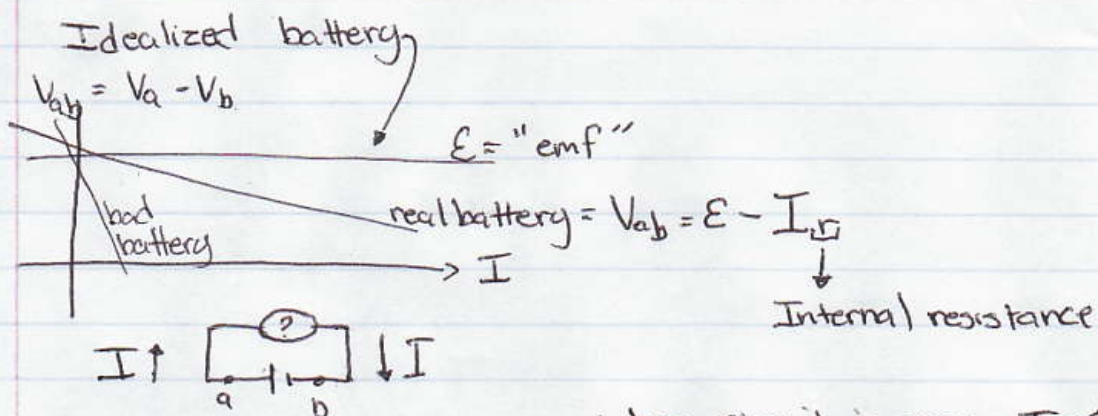 Idealized battery
Vab = Va - Vb
ε = "emf"
bad battery
real battery = Vab = ε - Ir
I
Internal resistance
?
I ↑ ↓ I
a b